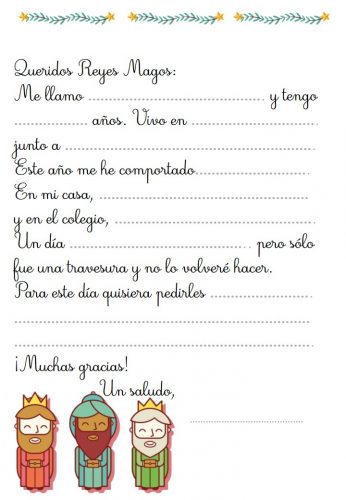 Queridos Reyes Magos:
Me llamo ........................................ y tengo
.................. años. Vivo en ..............................
junto a ............................................................
Este año me he comportado...........................
En mi casa, ....................................................
y en el colegio, ................................................
Un día .......................................... pero sólo
fue una travesura y no lo volveré hacer.
Para este día quisiera pedirles .......................
......................................................................
......................................................................
¡Muchas gracias!
Un saludo,
...........................